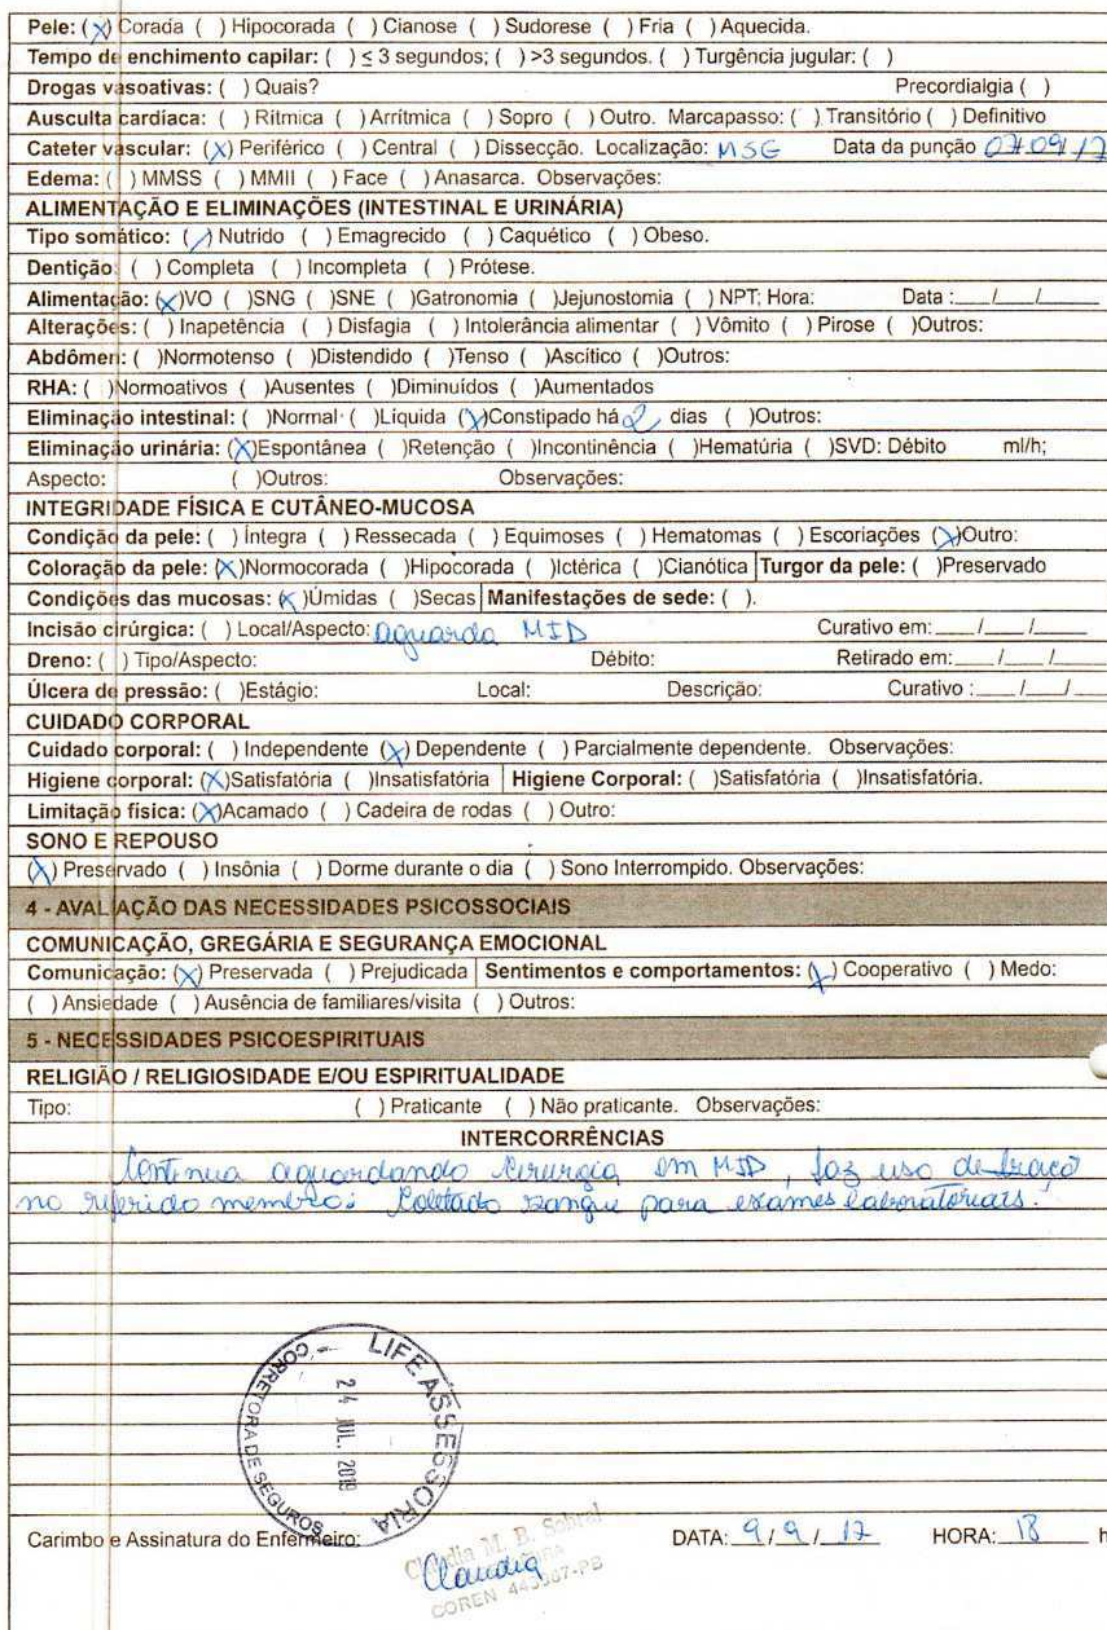 Pele: (X) Corada ( ) Hipocorada ( ) Cianose ( ) Sudorese ( ) Fria ( ) Aquecida.
Tempo de enchimento capilar: ( ) ≤ 3 segundos; ( ) >3 segundos. ( ) Turgência jugular: ( )
Drogas vasoativas: ( ) Quais? Precordialgia ( )
Ausculta cardíaca: ( ) Rítmica ( ) Arrítmica ( ) Sopro ( ) Outro. Marcapasso: ( ) Transitório ( ) Definitivo
Cateter vascular: (X) Periférico ( ) Central ( ) Dissecção. Localização: MSE Data da punção 07.09/17
Edema: ( ) MMSS ( ) MMII ( ) Face ( ) Anasarca. Observações:
ALIMENTAÇÃO E ELIMINAÇÕES (INTESTINAL E URINÁRIA)
Tipo somático: (/) Nutrido ( ) Emagrecido ( ) Caquético ( ) Obeso.
Dentição: ( ) Completa ( ) Incompleta ( ) Prótese.
Alimentação: (X)VO ( )SNG ( )SNE ( )Gatronomia ( )Jejunostomia ( ) NPT; Hora: Data :___/___/___
Alterações: ( ) Inapetência ( ) Disfagia ( ) Intolerância alimentar ( ) Vômito ( ) Pirose ( )Outros:
Abdômen: ( )Normotenso ( )Distendido ( )Tenso ( )Ascítico ( )Outros:
RHA: ( )Normoativos ( )Ausentes ( )Diminuídos ( )Aumentados
Eliminação intestinal: ( )Normal ( )Líquida (X)Constipado há 2 dias ( )Outros:
Eliminação urinária: (X)Espontânea ( )Retenção ( )Incontinência ( )Hematúria ( )SVD: Débito ml/h;
Aspecto: ( )Outros: Observações:
INTEGRIDADE FÍSICA E CUTÂNEO-MUCOSA
Condição da pele: ( ) Íntegra ( ) Ressecada ( ) Equimoses ( ) Hematomas ( ) Escoriações (X)Outro:
Coloração da pele: (X)Normocorada ( )Hipocorada ( )Ictérica ( )Cianótica Turgor da pele: ( )Preservado
Condições das mucosas: (X)Úmidas ( )Secas Manifestações de sede: ( ).
Incisão cirúrgica: ( ) Local/Aspecto: aguarda MID Curativo em:___/___/___
Dreno: ( ) Tipo/Aspecto: Débito: Retirado em:___/___/___
Úlcera de pressão: ( )Estágio: Local: Descrição: Curativo :___/___/___
CUIDADO CORPORAL
Cuidado corporal: ( ) Independente (X) Dependente ( ) Parcialmente dependente. Observações:
Higiene corporal: (X)Satisfatória ( )Insatisfatória Higiene Corporal: ( )Satisfatória ( )Insatisfatória.
Limitação física: (X)Acamado ( ) Cadeira de rodas ( ) Outro:
SONO E REPOUSO
(X) Preservado ( ) Insônia ( ) Dorme durante o dia ( ) Sono Interrompido. Observações:
4 - AVALIAÇÃO DAS NECESSIDADES PSICOSSOCIAIS
COMUNICAÇÃO, GREGÁRIA E SEGURANÇA EMOCIONAL
Comunicação: (X) Preservada ( ) Prejudicada Sentimentos e comportamentos: (X) Cooperativo ( ) Medo:
( ) Ansiedade ( ) Ausência de familiares/visita ( ) Outros:
5 - NECESSIDADES PSICOESPIRITUAIS
RELIGIÃO / RELIGIOSIDADE E/OU ESPIRITUALIDADE
Tipo: ( ) Praticante ( ) Não praticante. Observações:
INTERCORRÊNCIAS
Continua aguardando cirurgia em MID, faz uso de traço
no referido membro. Coletado sangue para exames laboratoriais.
LIFE ASSESSORIA
24 JUL. 2019
CORRETORA DE SEGUROS
Carimbo e Assinatura do Enfermeiro: DATA: 9/9/17 HORA: 18 h
Claudia M. B. Sobral
Claudia
COREN -PB